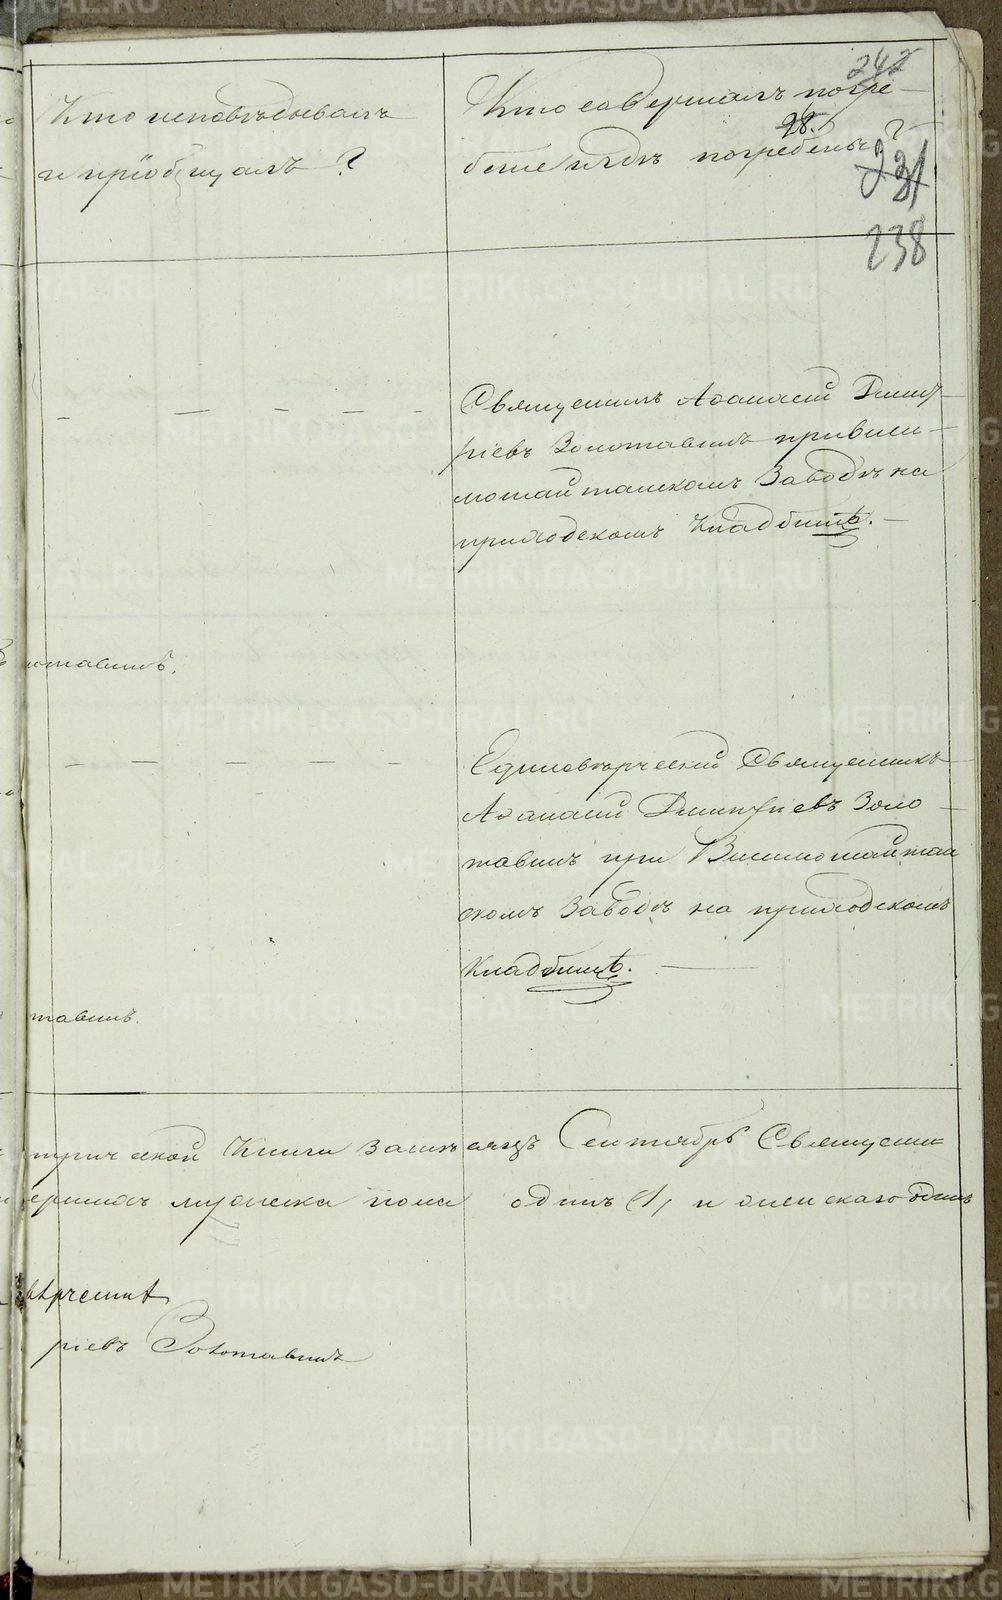 242
Кто исповѣдывалъ
и пріобщалъ?
Кто совершалъ погре-
98.
беніе и гдѣ погребены?
231
238
Священникъ Аѳанасій Дмит-
ріевъ Золотавинъ при Виси-
мошайтанскомъ Заводѣ на
приходскомъ Кладбищѣ. —
Единовѣрческій Священникъ
Аѳанасій Дмитріевъ Золо-
тавинъ при Висимошайтан
скомъ Заводѣ на приходскомъ
Кладбищѣ. —
отавинъ.
тавинъ.
трической Книги За мѣсяцъ Сентябрь Священни
ершихъ мужеска пола одинъ (1, и женскаго одинъ
вѣрческій
ріевъ Золотавинъ
METRIKI.GASO-URAL.RU